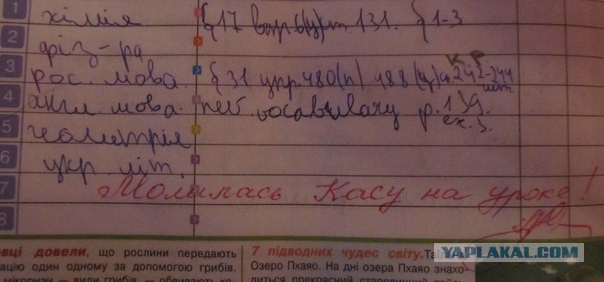 1 хімія § 17 вопр 6(у) ст 131. § 1-3
2 фіз-ра
К Р
3 рос. мова. § 31 упр. 480(п) 488 (у) 242-244
4 англ. мова. new vocabulary p. 139.
ex. 3.
5 геометрія
6 укр літ.
7 Молилась Касу на уроке!
8
вці довели, що рослини передають
ацію один одному за допомогою грибів.
7 підводних чудес світу.
Озеро Пхаяо. На дні озера Пхаяо знахо-
диться прекрасний старовинний
YAPLAKAL.COM